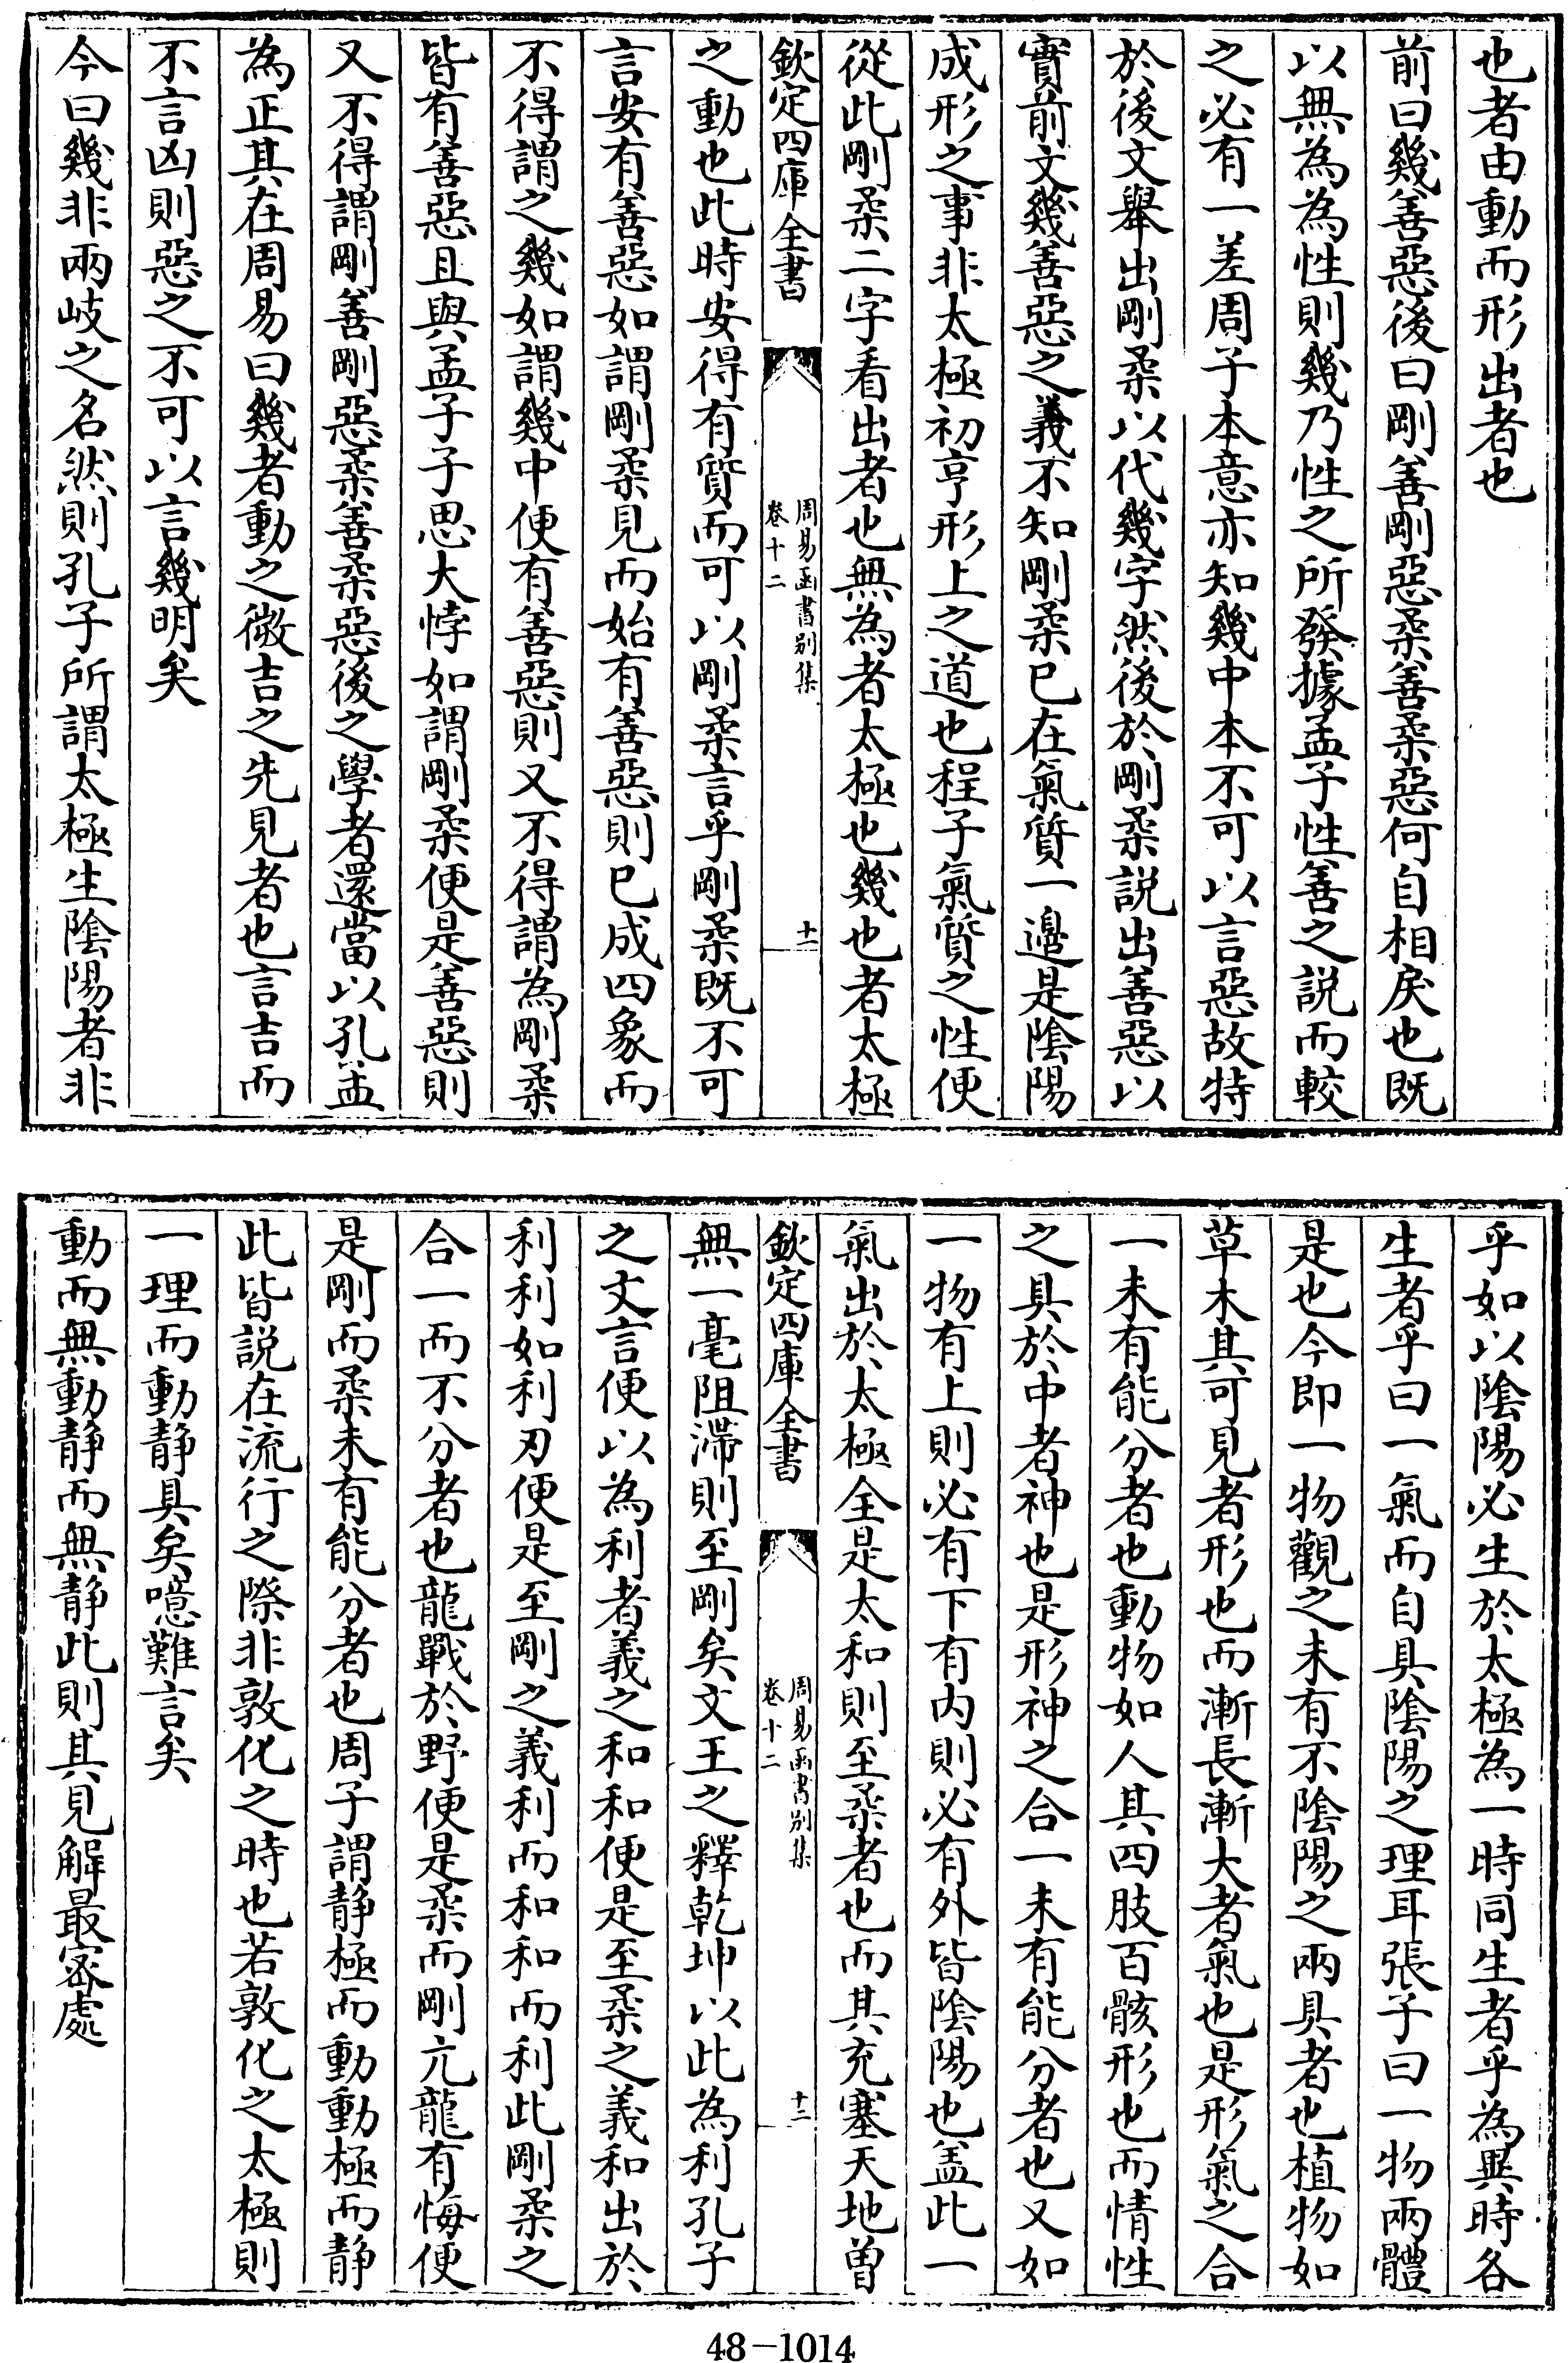 也者由動而形出者也
前曰幾善惡後曰剛善剛惡柔善柔惡何自相戾也既
以無為為性則幾乃性之所發據孟子性善之説而較
之必有一差周子本意亦知幾中本不可以言惡故特
於後文舉出剛柔以代幾字然後於剛柔説出善惡以
實前文幾善惡之義不知剛柔已在氣質一邊是陰陽
成形之事非太極初亨形上之道也程子氣質之性便
從此剛柔二字看出者也無為者太極也幾也者太極
欽定四庫全書
周易函書别集
卷十二
十一
之動也此時安得有質而可以剛柔言乎剛柔既不可
言安有善惡如謂剛柔見而始有善惡則已成四象而
不得謂之幾如謂幾中便有善惡則又不得謂為剛柔
皆有善惡且與孟子子思大悖如謂剛柔便是善惡則
又不得謂剛善剛惡柔善柔惡後之學者還當以孔孟
為正其在周易曰幾者動之微吉之先見者也言吉而
不言凶則惡之不可以言幾明矣
今曰幾非兩岐之名然則孔子所謂太極生陰陽者非
乎如以陰陽必生於太極為一時同生者乎為異時各
生者乎曰一氣而自具陰陽之理耳張子曰一物兩體
是也今即一物觀之未有不陰陽之兩具者也植物如
草木其可見者形也而漸長漸大者氣也是形氣之合
一未有能分者也動物如人其四肢百骸形也而情性
之具於中者神也是形神之合一未有能分者也又如
一物有上則必有下有内則必有外皆陰陽也盖此一
氣出於太極全是太和則至柔者也而其充塞天地曾
欽定四庫全書
周易函書别集
卷十二
十二
無一毫阻滯則至剛矣文王之釋乾坤以此為利孔子
之文言便以為利者義之和和便是至柔之義和出於
利利如利刃便是至剛之義利而和和而利此剛柔之
合一而不分者也龍戰於野便是柔而剛亢龍有悔便
是剛而柔未有能分者也周子謂静極而動動極而静
此皆説在流行之際非敦化之時也若敦化之太極則
一理而動静具矣噫難言矣
動而無動静而無静此則其見解最密處
48-1014